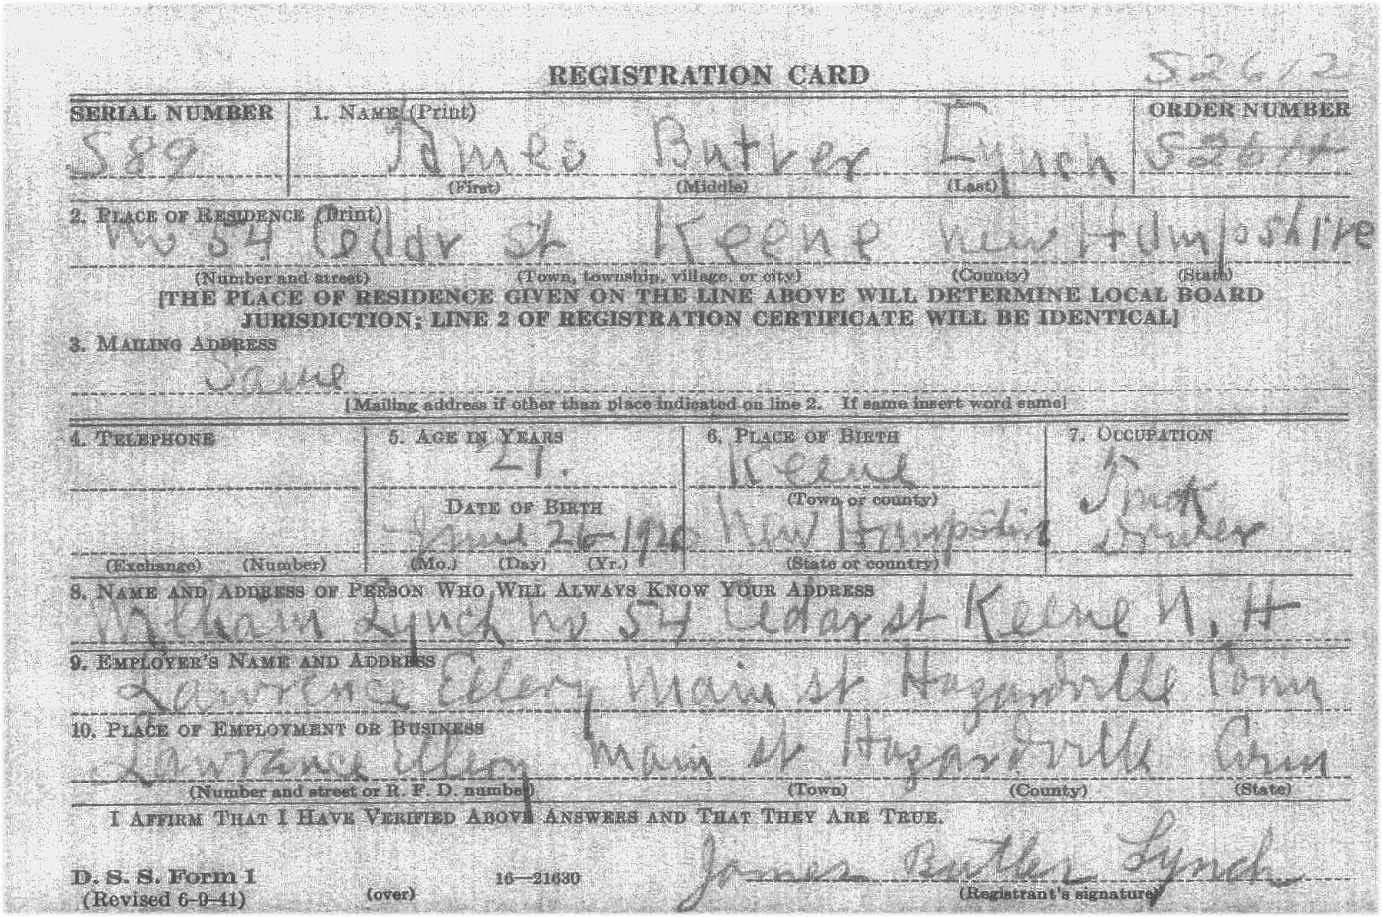 REGISTRATION CARD
S2612
SERIAL NUMBER 1. NAME (Print) ORDER NUMBER
S89 James Butler Lynch S2611
(First) (Middle) (Last)
2. PLACE OF RESIDENCE (Print)
No 54 Cedar st Keene new Hampshire
(Number and street) (Town, township, village, or city) (County) (State)
[THE PLACE OF RESIDENCE GIVEN ON THE LINE ABOVE WILL DETERMINE LOCAL BOARD
JURISDICTION; LINE 2 OF REGISTRATION CERTIFICATE WILL BE IDENTICAL]
3. MAILING ADDRESS
Same
[Mailing address if other than place indicated on line 2. If same insert word same]
4. TELEPHONE 5. AGE IN YEARS 6. PLACE OF BIRTH 7. OCCUPATION
21. Keene Truck
(Town or county)
DATE OF BIRTH
June 26 1920 New Hampshire Driver
(Exchange) (Number) (Mo.) (Day) (Yr.) (State or country)
8. NAME AND ADDRESS OF PERSON WHO WILL ALWAYS KNOW YOUR ADDRESS
William Lynch no 54 Cedar st Keene N. H
9. EMPLOYER'S NAME AND ADDRESS
Lawrence Ellery Main st Hazardville Conn
10. PLACE OF EMPLOYMENT OR BUSINESS
Lawrance Ellery main st Hazardville Conn
(Number and street or R. F. D. number) (Town) (County) (State)
I AFFIRM THAT I HAVE VERIFIED ABOVE ANSWERS AND THAT THEY ARE TRUE.
James Butler Lynch
D. S. S. Form 1 16—21630
(Revised 6-9-41) (over) (Registrant's signature)